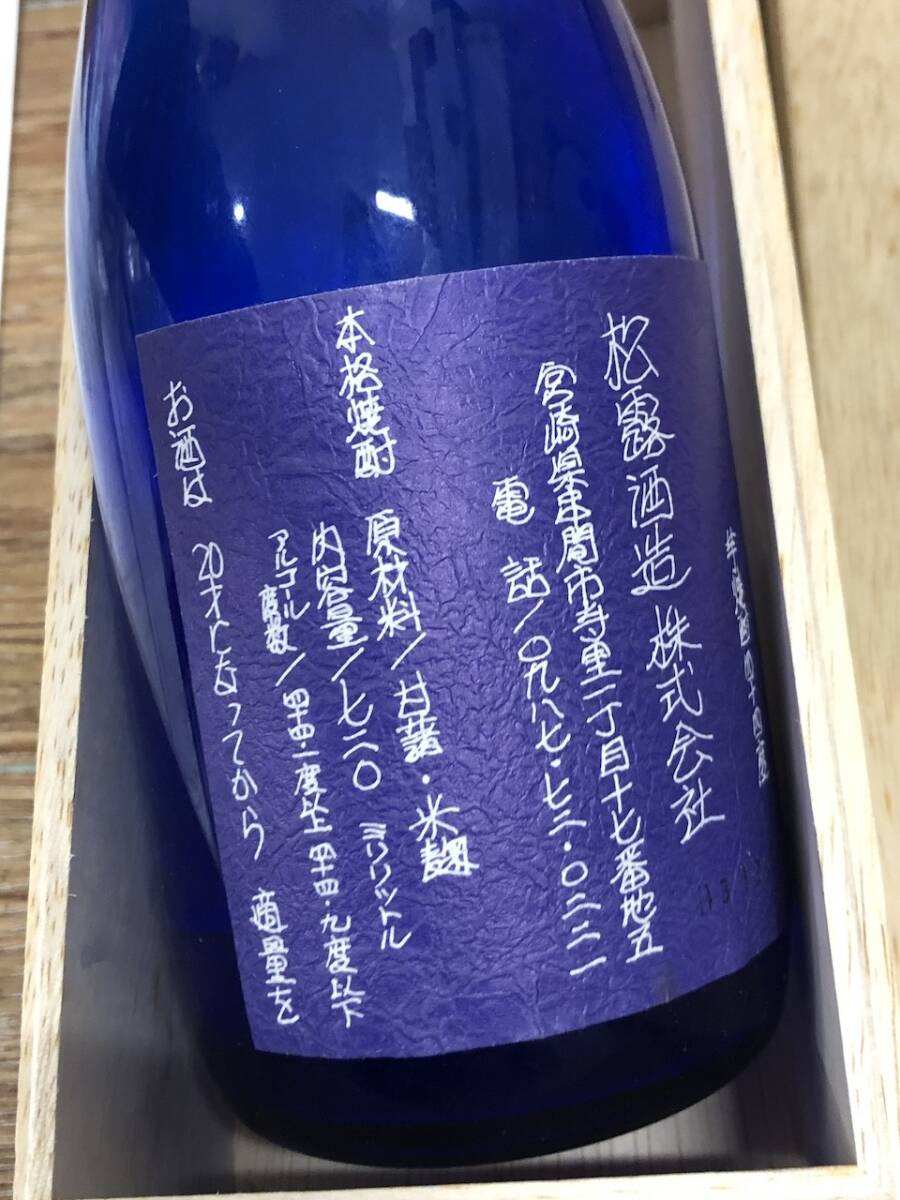 芋焼酎四十四度
松露酒造株式会社
宮崎県串間市寺里一丁目十七番地五
電話/〇九八七・七二・〇二二一
本格焼酎
原材料/甘藷・米麹
内容量/七二〇ミリリットル
アルコール度数/四十四・一度以上四十四・九度以下
お酒は20才になってから適量を